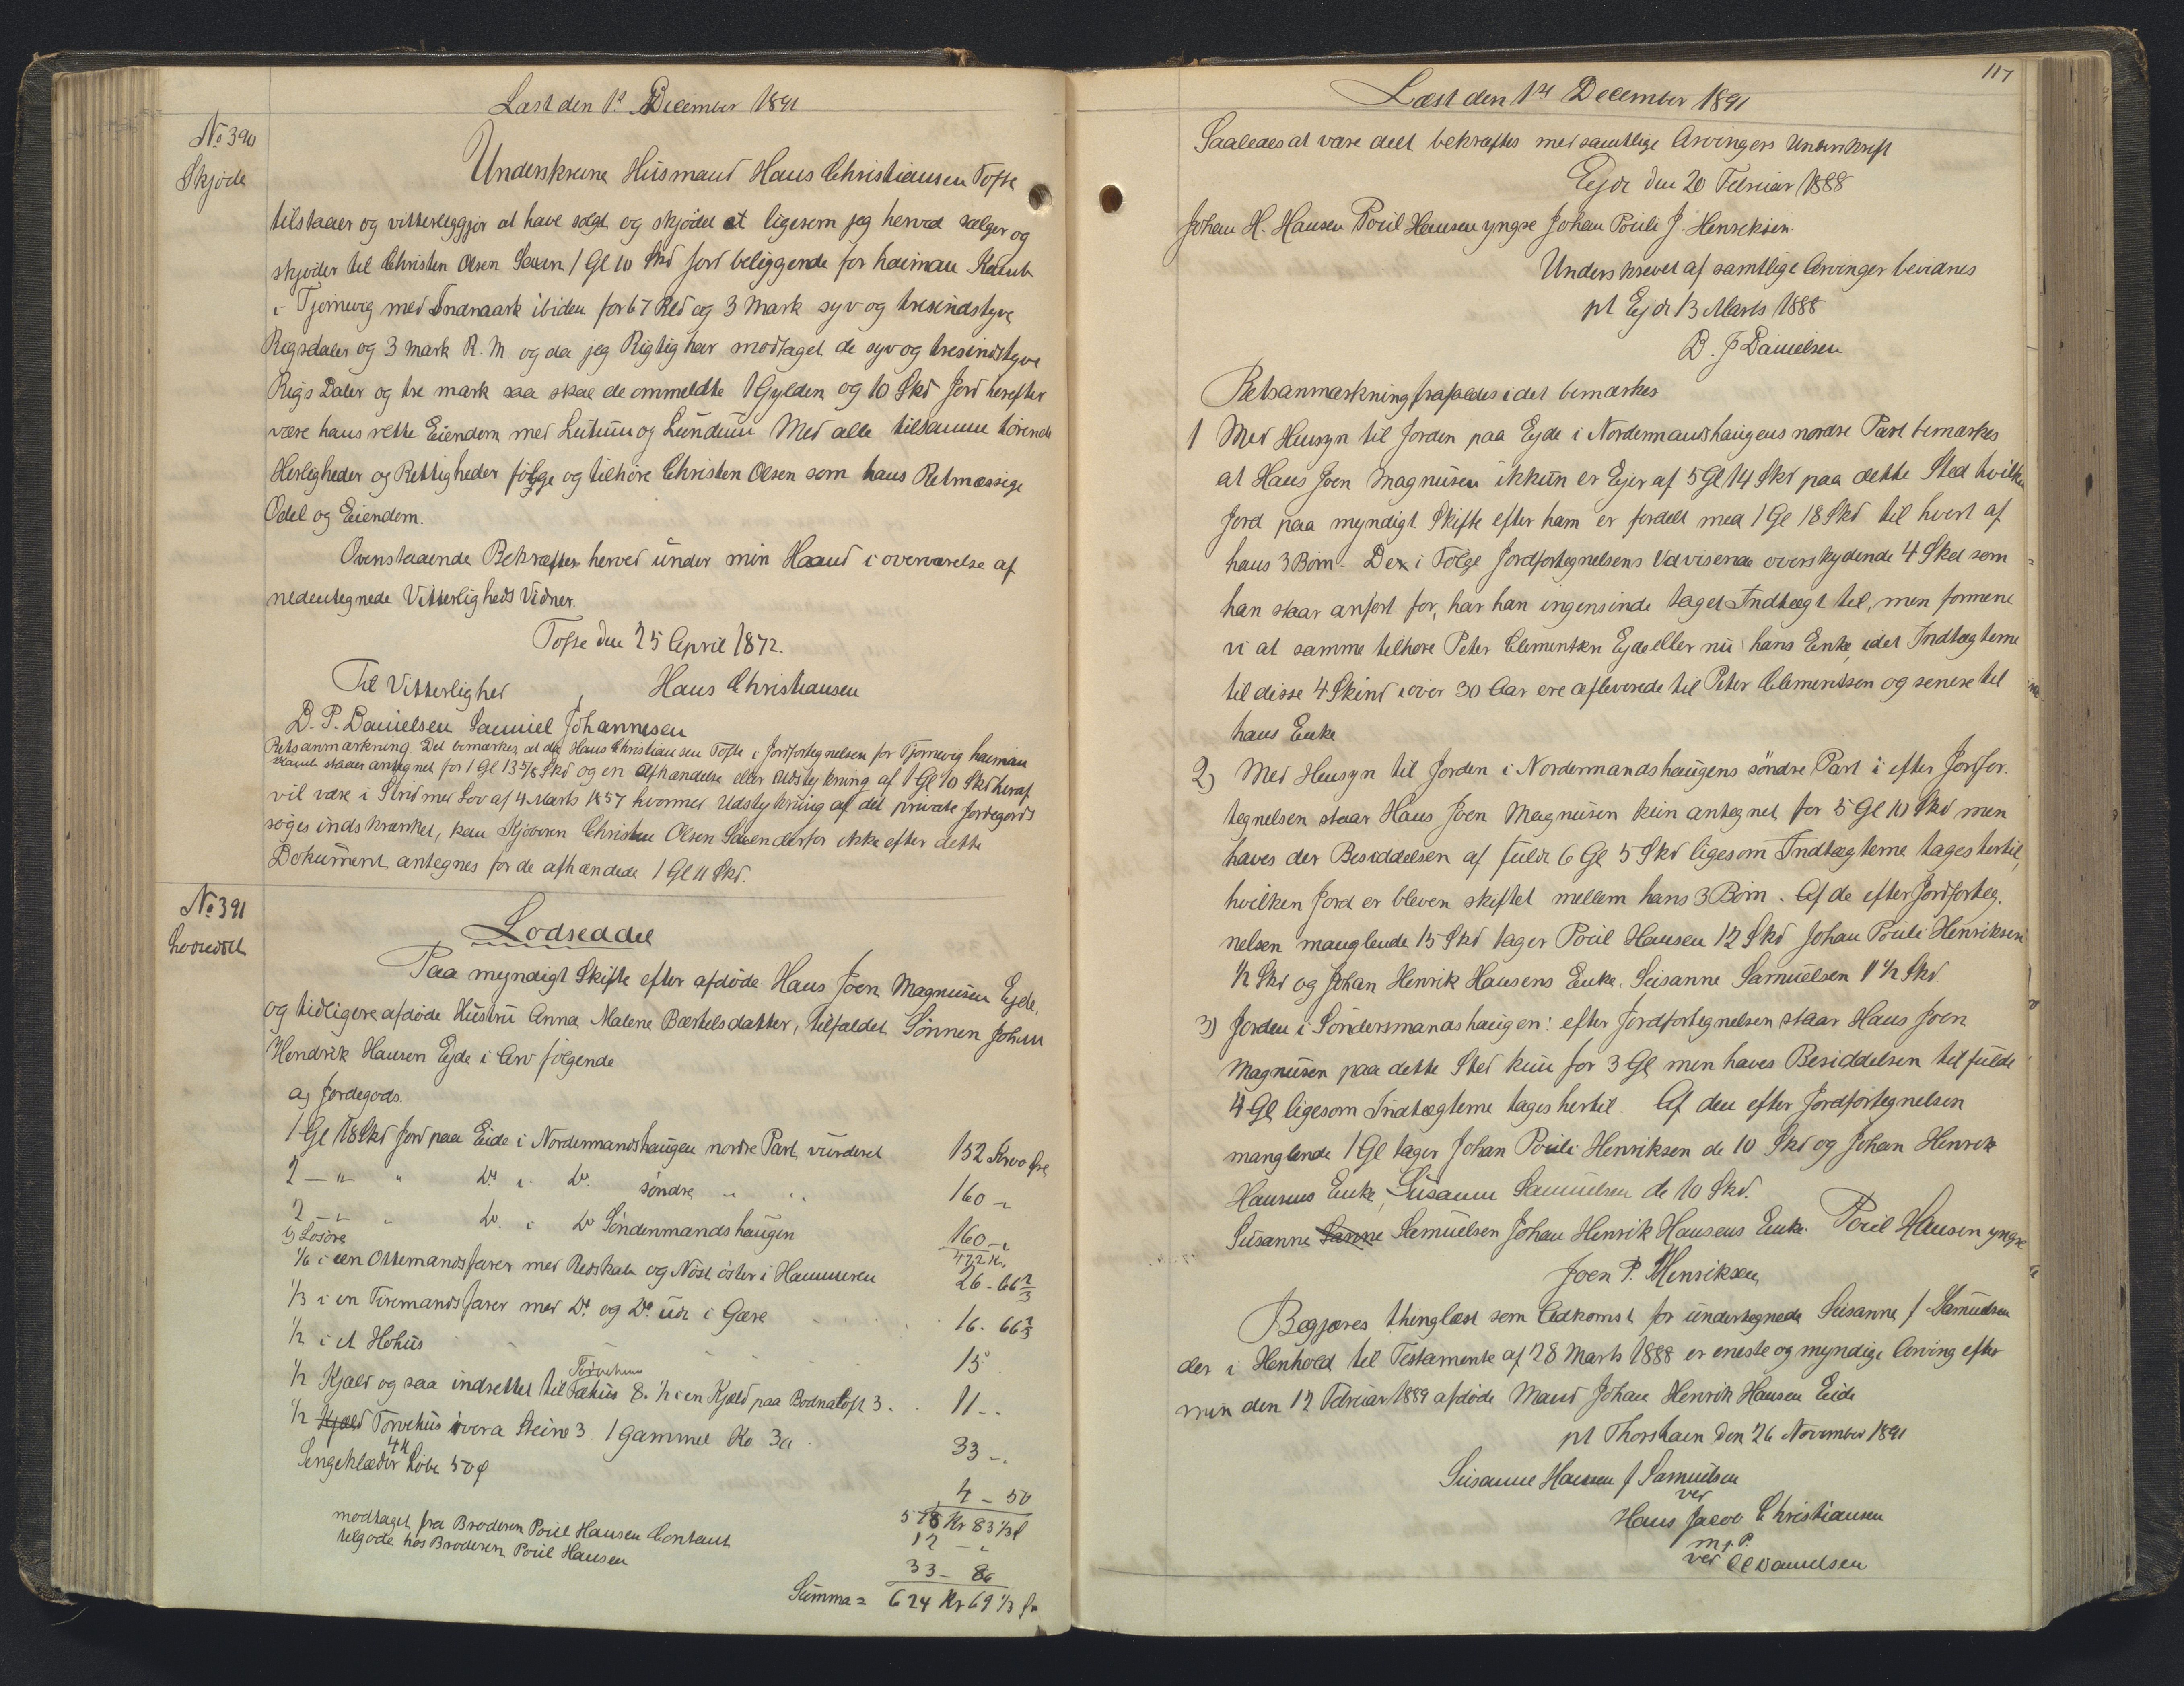 Læst den 1ste December 1891
No 390
Skjøde
Underskrevne Husmand Hans Christiansen Tofte
tilstaaer og vitterliggjør at have solgt og skjødet at ligesom jeg herved sælger og
skjøder til Christen Olsen Saxen 1 Gl 10 Skd Jord beliggende for haiman Skaut
i Tjørnevig med Indmark ibiden for 67 Rbd og 3 Mark syv og tresindstyve
Rigsdaler og 3 mark R. M. og da jeg Rigtig har modtaget de syv og tresindstyve
Rigs Daler og tre mark saa skal de ommeldte 1 Gylden og 10 Skd Jord herefter
være hans rette Eiendom med Lutum og Lundum Med alle tilsamme hørende
Herligheder og Rettigheder følge og tilhøre Christen Olsen som hans Retmæssige
Odel og Eiendom.
Ovenstaaende Bekræfter herved under min Haand i overværelse af
nedentegnede Vitterligheds Vidner.
Tofte den 25 April 1872.
Til Vitterlighed Hans Christiansen
D. P. Danielsen Samuel Johannesen
Retsanmærkning. Det bemærkes, at da Hans Christiansen Tofte i Jordfortegnelsen for Tjørnevig haiman
Skaut staaer antegnet for 1 Gl 13 5/8 Skd og en Afhændelse eller Udstykning af 1 Gl 10 Skd heraf
vil være i Strid med Lov af 4 Marts 1857 hvormed Udstykning af det private Jordegods
søges indskrænket, kan Kjøberen Christen Olsen Saxen derfor ikke efter dette
Dokument antegnes for de afhændede 1 Gl 11 Skd.
No 391
Lodseddel
Lodseddel
Paa myndigt Skifte efter afdøde Hans Joen Magnusen Ejde,
og tidligere afdøde Hustru Anna Malene Bærtelsdatter, tilfaldet Sønnen Johan
Hendrik Hansen Ejde i Arv følgende
a) Jordegods.
1 Gl 18 Skd Jord paa Eide i Nordenmandshaugen nordre Part, vurderet 152 Kroner
2 - " " Do i Do søndre " " 160 "
2 - " " Do i Do Søndenmandshaugen 160 "
472 Kr.
b) Løsøre
1/6 i een Ottemandsfarer med Redskab og Nøst øster i Hammeren 26 - 66 2/3
1/3 i en Tiremandsfarer med Do og Do ude i Gære 16. 66 2/3
1/2 i et Høhus 15
1/2 Kjæld og saa indrettet til Tørvehuus Fæhus 8. 1/2 i en Kjæld paa Bodnatoft 3. 11 -
1/2 Kjæld Torvehus ivora Steine 3. 1 gammel Ko 30 33 -
Sengeklæder 4 K Løbe 50 Ø 4 - 50
578 Kr 83 1/3 Ø
modtaget fra Broderen Poul Hansen Contant 12 - "
tilgode hos Broderen Poul Hansen 33 - 86
Summa = 624 Kr 69 1/3 Ør
117
Læst den 1ste December 1891
Saaledes at være delt bekræftes med samtlige Arvingers Underskrift
Ejde den 20 Februar 1888
Johan H. Hansen Poul Hansen yngre Johan Pouli J. Henriksen.
Underskrevet af samtlige Arvinger bevidnes
pt Ejde 13 Marts 1888
D. J. Danielsen
Retsanmærkning frafaldes idet bemærkes
1 Med Hensyn til Jorden paa Ejde i Nordermandshaugens nordre Part bemærkes
at Hans Joen Magnusen ikkun er Ejer af 5 Gl 14 Skd paa dette Sted hvilken
Jord paa myndigt Skifte efter ham er fordelt med 1 Gl 18 Skd til hvert af
hans 3 Børn. De i Følge Jordfortegnelsens Udvisende overskydende 4 Skd som
han staar anført for, har han ingensinde taget Indtægt til, men formene
vi at samme tilhøre Peter Clementsen Ejde eller nu hans Enke, idet Indtægterne
til disse 4 Skind i over 30 Aar ere afleverede til Peter Clementsen og senere til
hans Enke
2) Med Hensyn til Jorden i Nordermandshaugens søndre Part i efter Jordfor-
tegnelsen staar Hans Joen Magnusen kun antegnet for 5 Gl 10 Skd men
haves der Besiddelsen af fulde 6 Gl 5 Skd ligesom Indtægterne tages hertil,
hvilken Jord er bleven skiftet mellem hans 3 Børn. Af de efter Jordforteg-
nelsen manglende 15 Skd tager Poul Hansen 12 Skd Johan Pouli Henriksen
1/2 Skd og Johan Henrik Hansens Enke, Susanne Samuelsen 1 1/2 Skd
3) Jorden i Søndersmandshaugen: efter Jordfortegnelsen staar Hans Joen
Magnusen paa dette Sted kun for 3 Gl men haves Besiddelsen til fulde
4 Gl ligesom Indtægterne tages hertil. Af den efter Jordfortegnelsen
manglende 1 Gl tager Johan Pouli Henriksen de 10 Skd og Johan Henrik
Hansens Enke, Susanne Samuelsen de 10 Skd.
Susanne Sanne Samuelsen Johan Henrik Hansens Enke. Poul Hansen yngre
Joen P. Henriksen
Begjæres thinglæst som Adkomst for undertegnede Susanne f. Samuelsen
der i Henhold til Testamente af 28 Marts 1888 er eneste og myndige Arving efter
min den 12 Februar 1889 afdøde Mand Johan Henrik Hansen Eide
pt Thorshavn den 26 November 1891
Susanne Hansen f. Samuelsen
ved
Hans Jacob Christiansen
m. P.
ved O C Danielsen